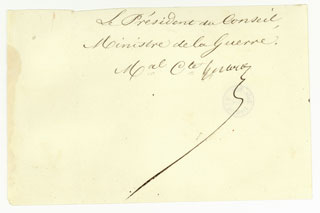 Le Président du Conseil
Ministre de la Guerre
Mal Cte